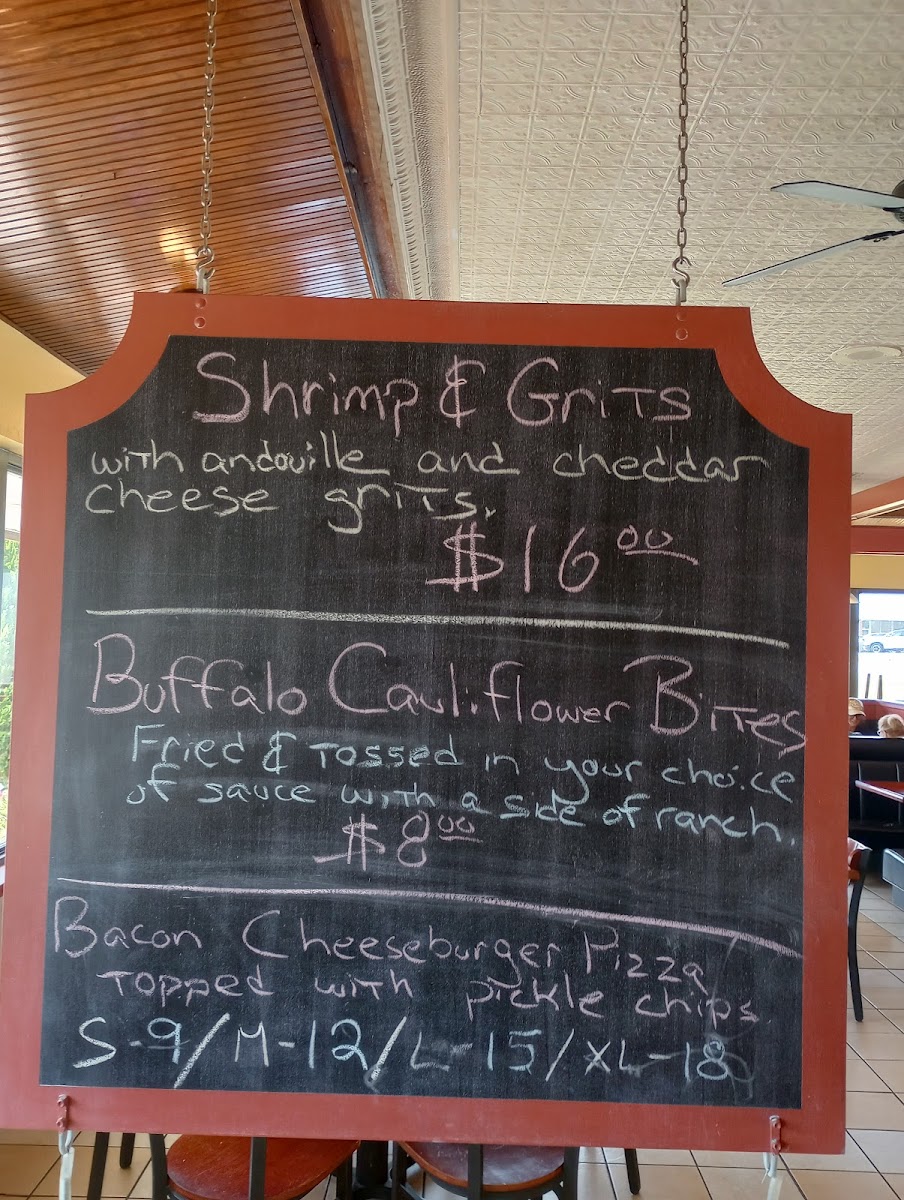 Shrimp & Grits
with andouille and cheddar
cheese grits.
$16.00
Buffalo Cauliflower Bites
Fried & tossed in your choice
of sauce with a side of ranch.
$8.00
Bacon Cheeseburger Pizza
topped with pickle chips
S-9/M-12/L-15/XL-18